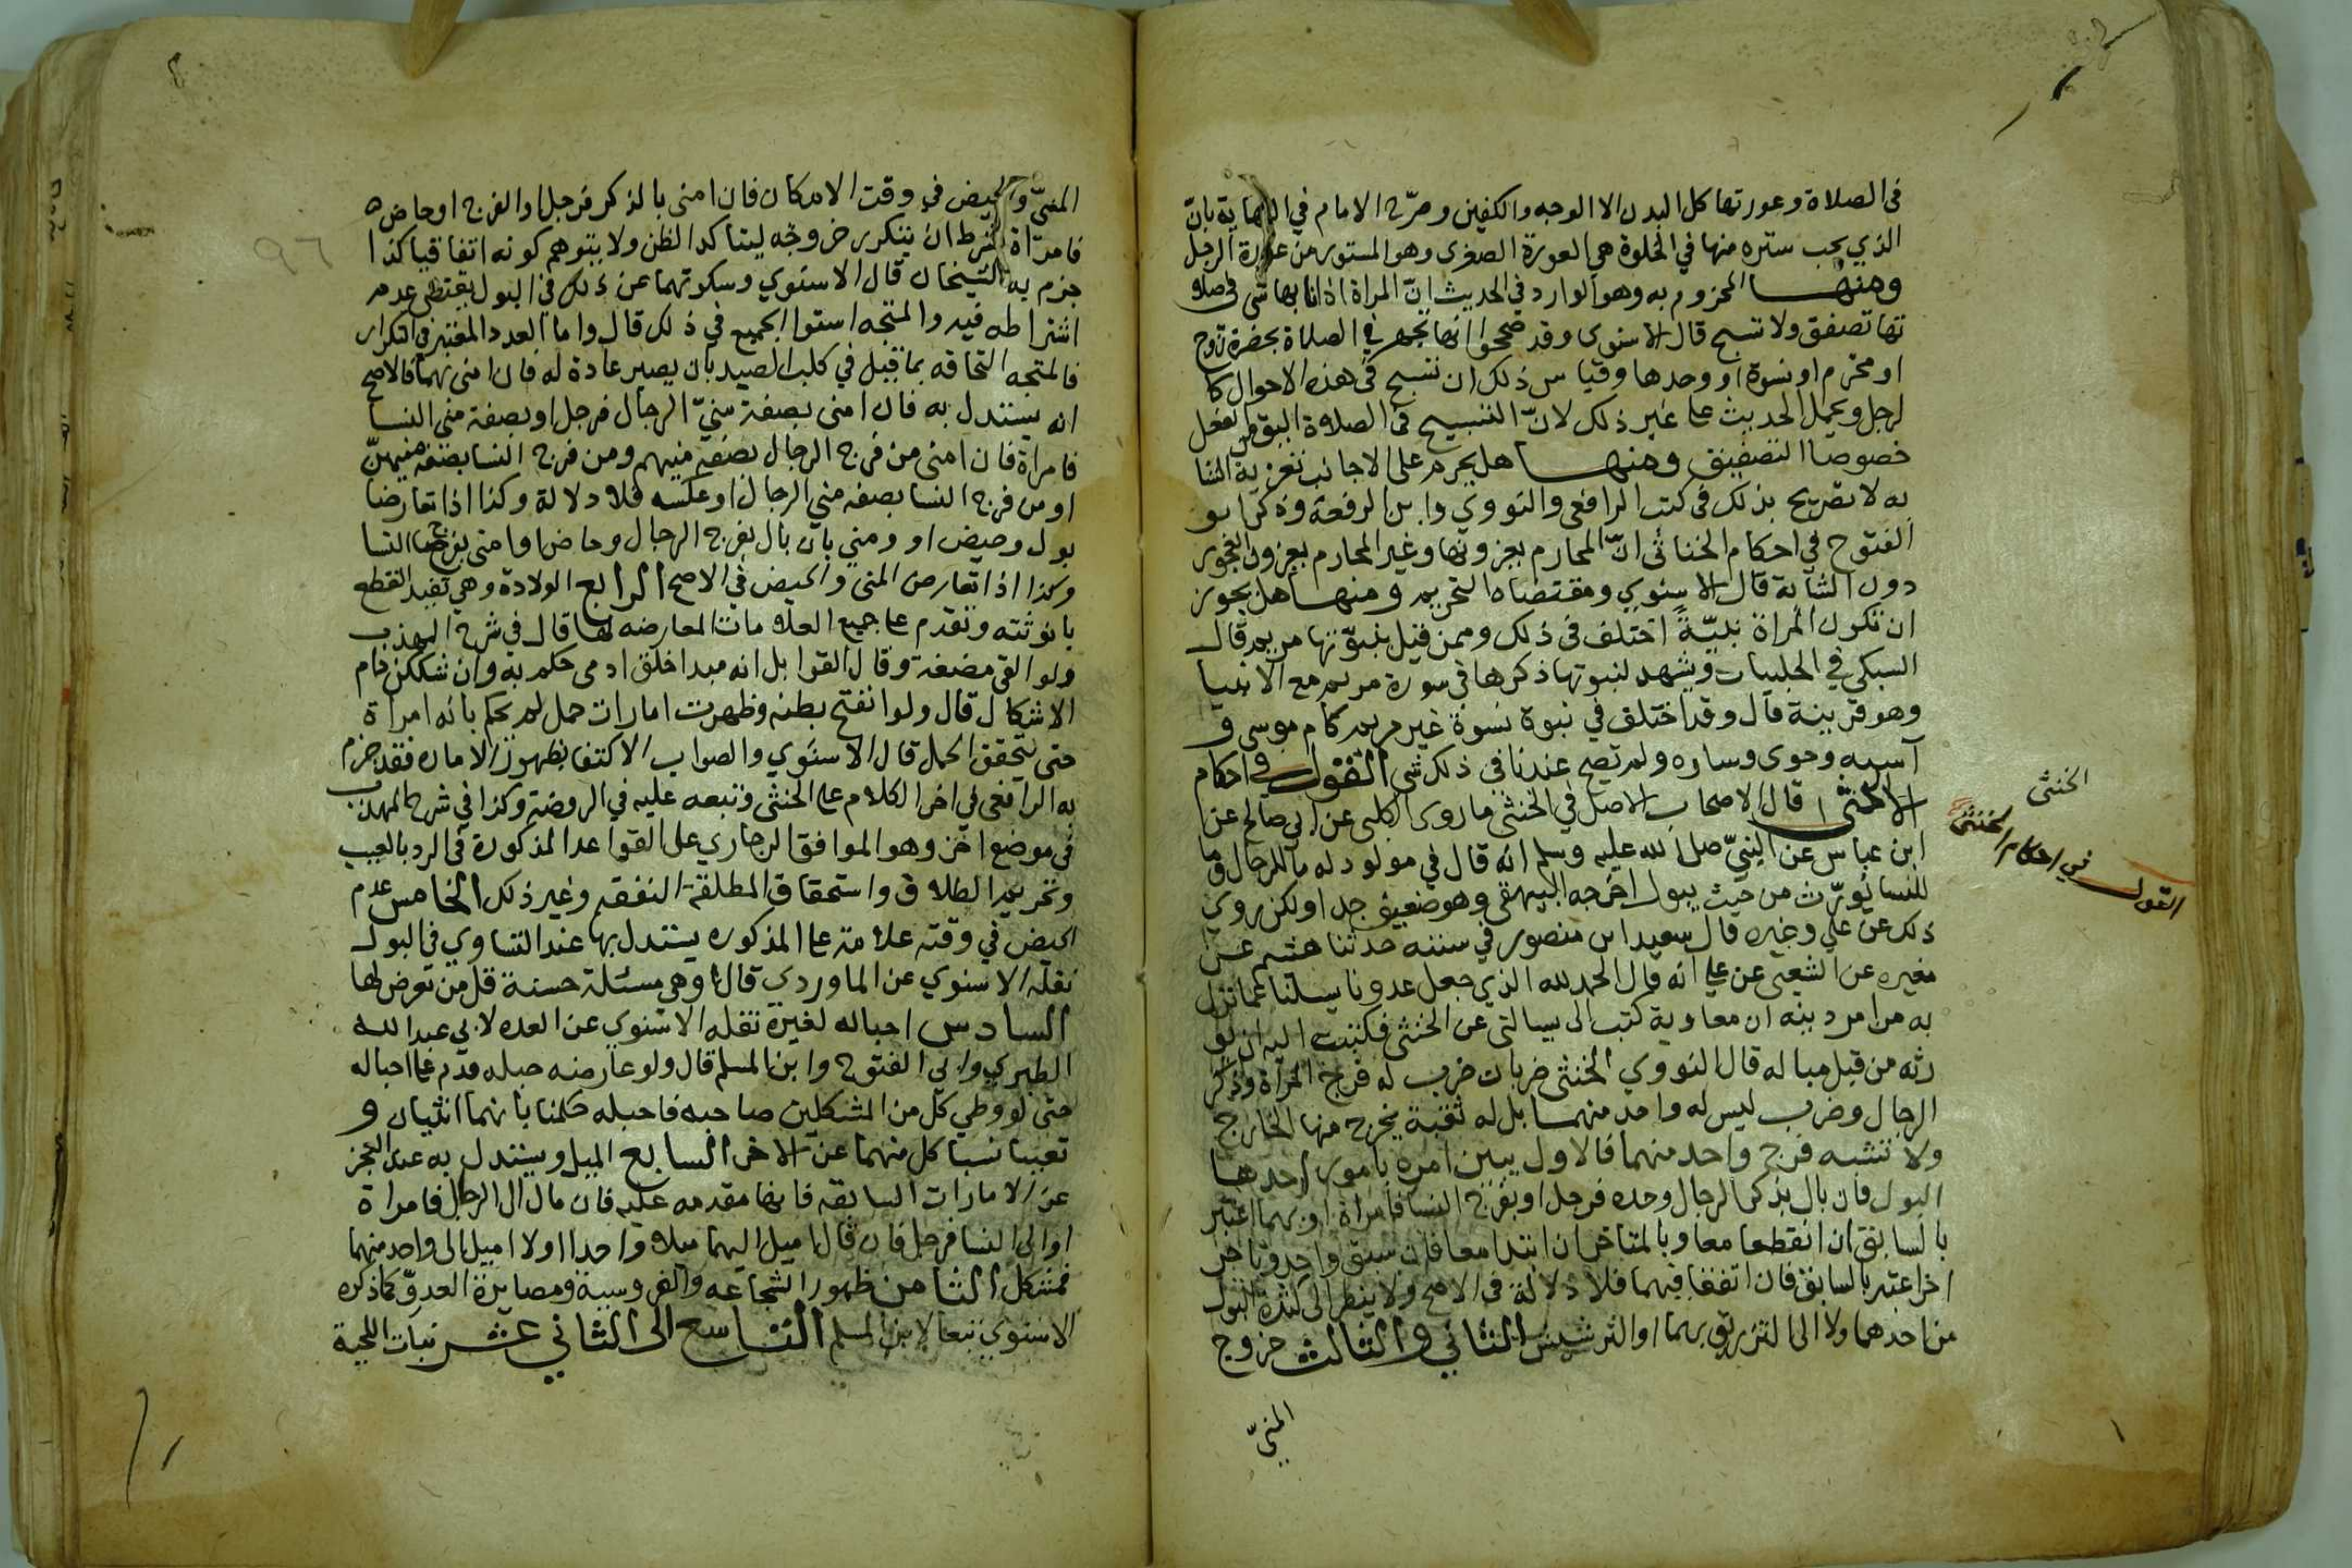 في الصلاة وعورتها كل البدن الا الوجه والكفين وصرّح الامام في النهاية بانّ
الذي يجب ستره منها في الخلوة هي العورة الصغرى وهو المستور من عورة الرجل
ومنها المجزوم به وهو الوارد في الحديث انّ المراة اذا نابها شى في صلا
تها تصفق ولا تسبح قال الاسنوي وقد صححوا انها تجهر في الصلاة بحضرة زوج
او محرم او نسوة او وحدها وقياس ذلك ان تسبح في هذه الاحوال كا
لرجل ويحمل الحديث على غير ذلك لانّ التسبيح في الصلاة اليق من الفعل
خصوصا التصفيق ومنها هل يحرم على الاجانب تعزية الشا
به لا تصريح بذلك في كتب الرافعي والنووي وابن الرفعة وذكر ابو
الفتوح في احكام الخناثى انّ المحارم يعزونها وغير المحارم يعزون العجوز
دون الشابة قال الاسنوي ومقتضاه التحريم ومنها هل يجوز
ان تكون المراة نبيّةً اختلف في ذلك وممن قيل بنبوّتها مريم قال
السبكي في الحلبيات ويشهد لنبوتها ذكرها في سورة مريم مع الانبيا
وهو قرينة قال وقد اختلف في نبوة نسوة غير مريم كام موسى و
آسيه وحوى وساره ولم تصح عندنا في ذلك شى القول في احكام
الخنثى قال الاصحاب الاصل في الخنثى ما روى الكلبى عن ابي صالح عن
ابن عباس عن النبيّ صلى الله عليه وسلم انه قال في مولود له ما للرجال وما
للنسا يُورّث من حيث يبول اخرجه البيهقى وهو ضعيف جدا ولكن روي
ذلك عن علي وغيره قال سعيد ابن منصور في سننه حدثنا هشيم عن
مغيره عن الشعبى عن علي انه قال الحمد لله الذي جعل عدونا يسلنا عما نزل
به من امر دينه ان معاوية كتب الى يسالني عن الخنثى فكتبت اليه ان يو
رثه من قبل مباله قال النووي الخنثى ضربان ضرب له فرج المرأة وذكر
الرجال وضرب ليس له واحد منهما بل له ثقبة يخرج منها الخارج
ولا تشبه فرج واحد منهما فالاول يبين امره بامور احدها
البول فان بال بذكر الرجال وحده فرجل او بفرج النسا فامراة او بهما اعتبر
بالسابق ان انقطعا معا وبالمتاخر ان ابتدا معا فان سبق واحد وتاخر
اخر اعتبر بالسابق فان اتفقا فيهما فلا دلالة في الاصح ولا ينظر الى كثرة البول
من احدهما ولا الى التزريق بهما او الترشيش الثاني والثالث خروج
المنيّ
الخنثى
القول في احكام الخنثى
المنيّ والحيض في وقت الامكان فان امنى بالذكر فرجل او الفرج او حاض
فامرّاة بشرط ان يتكرر خروجه ليتاكد الظن ولا يتوهم كونه اتفاقيا كذا
جزم به الشيخان قال الاسنوي وسكوتهما عن ذلك في البول يقتضى عدم
اشتراطه فيه والمتجه استوا الجميع في ذلك قال واما العدد المعتبر في التكرار
فالمتجه التحاقه بما قيل في كلب الصيد بان يصير عادة له فان امنى بهما فالاصح
انه يستدل به فان امنى بصفة منيّ الرجال فرجل او بصفة منى النسا
فامراة فان امنى من فرج الرجال بصفة منيهم ومن فرج النسا بصفة منيهنّ
او من فرج النسا بصفه مني الرجال او عكسه فلا دلالة وكذا اذا تعارضا
بول وحيض او ومني بان بال بفرج الرجال وحاض او امنى بفرج النسا
وكذا اذا تعارض المنى والحيض في الاصح الرابع الولادة وهي تفيد القطع
بانوثته وتقدم على جميع العلامات المعارضه لها قال في شرح المهذب
ولو القى مضغة وقال القوابل انه مبدا خلق ادمى حكم به وان شككن دام
الاشكال قال ولو انتفخ بطنه وظهرت امارات حمل لم يحكم بانه امراة
حتى يتحقق الحمل قال الاسنوي والصواب الاكتفا بظهور الاماره فقد جزم
به الرافعى في اخر الكلام على الخنثى وتبعه عليه في الروضة وكذا في شرح المهذب
في موضع اخر وهو الموافق الجاري على القواعد المذكورة في الرد بالعيب
وتحريم الطلاق واستحقاق المطلقة النفقه وغير ذلك الخامس عدم
الحيض في وقته علامة على الذكوره يستدل بها عند التساوي في البول
نقله الاسنوي عن الماوردي قال وهي مسئلة حسنة قل من تعرض لها
السادس احباله لغيره نقله الاسنوي عن العده لابي عبد الله
الطبري وابن ابي الفتوح وابن المسلم قال ولو عارضه حبله قدم على احباله
حتى لو وطي كل من المشكلين صاحبه فاحبله حكمنا بانهما انثيان و
نفينا نسبا كل منهما عن الاخر السابع الميل ويستدل به عند العجز
عن الامارات السابقه فانها مقدمه عليه فان مال الى الرجال فامراة
او الى النسا فرجل فان قال اميل اليهما ميلا واحدا او لا اميل الى واحد منهما
فمشكل الثامن ظهور الشجاعه والفروسية ومصابرة العدوّ كما ذكره
الاسنوي تبعا لابن المسلم التاسع الى الثاني عشر نبات اللحية